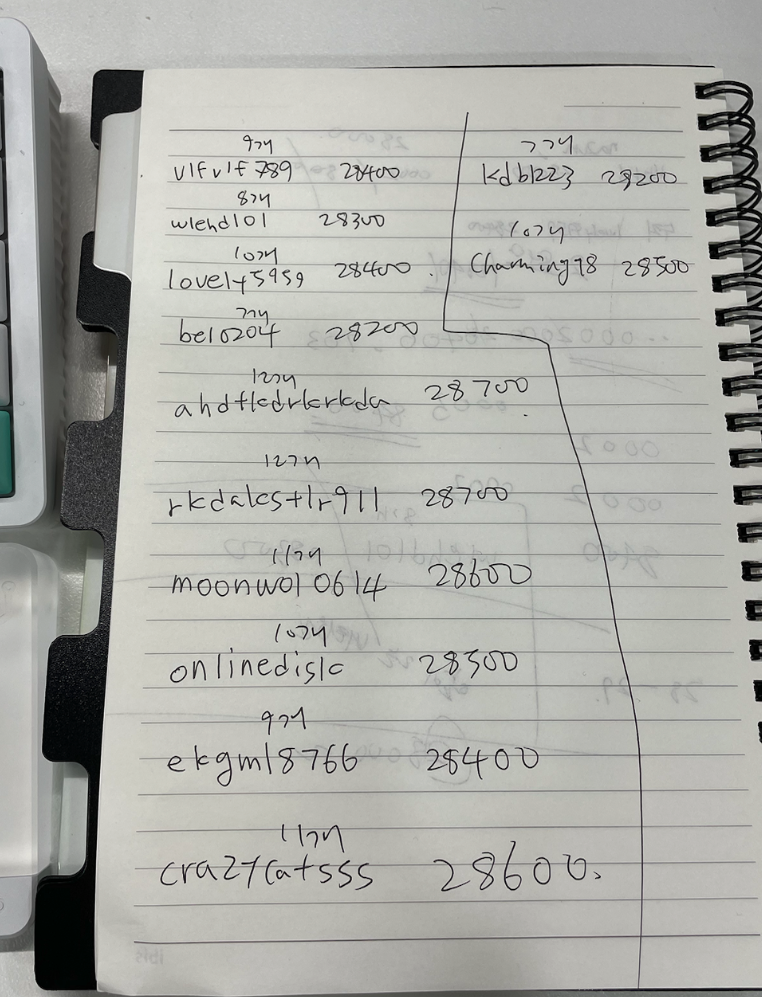 9개
vlfvlf789 28400
8개
wlehd101 28300
10개
lovely5959 28400.
7개
belo204 28200
12개
ahdtkdrkrkda 28700
12개
rkdalstlr911 28700
11개
moonwol0614 28600
10개
onlinedisk 28500
9개
ekgml8766 28400
11개
crazycatsss 28600.
7개
kdb1223 28200
10개
Charming78 28500